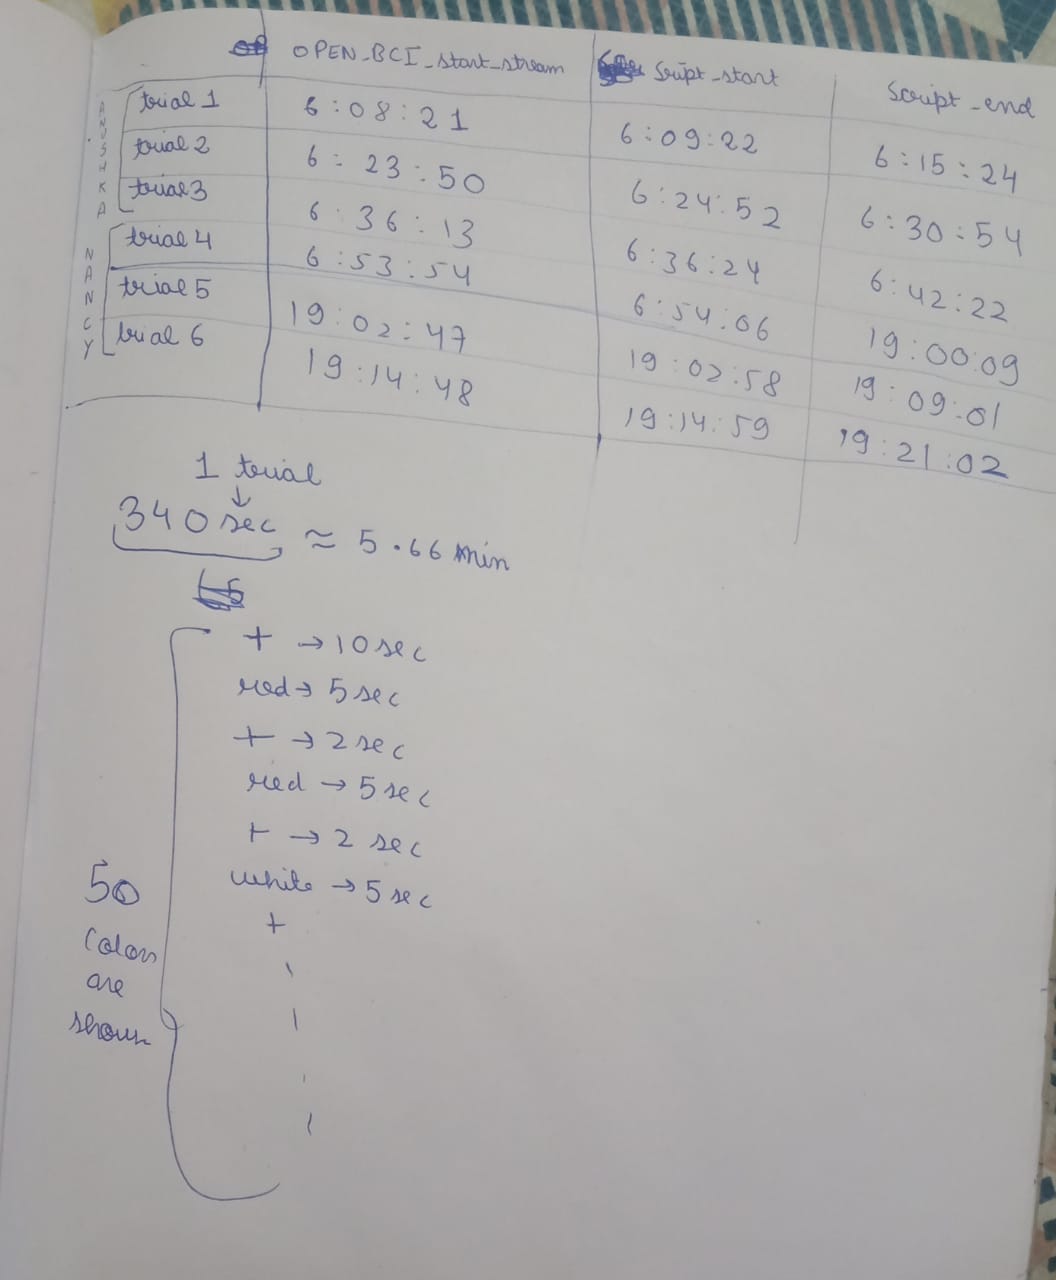 OPEN_BCI_start_stream Script_start Script_end
ANUSHKA
trial 1 6:08:21 6:09:22 6:15:24
trial 2 6:23:50 6:24:52 6:30:54
trial 3 6:36:13 6:36:24 6:42:22
NANCY
trial 4 6:53:54 6:54:06 19:00:09
trial 5 19:02:47 19:02:58 19:09:01
trial 6 19:14:48 19:14:59 19:21:02
1 trial
↓
340 sec ≈ 5.66 min
+ → 10 sec
red → 5 sec
+ → 2 sec
red → 5 sec
+ → 2 sec
white → 5 sec
+
50
Colors
are
shown